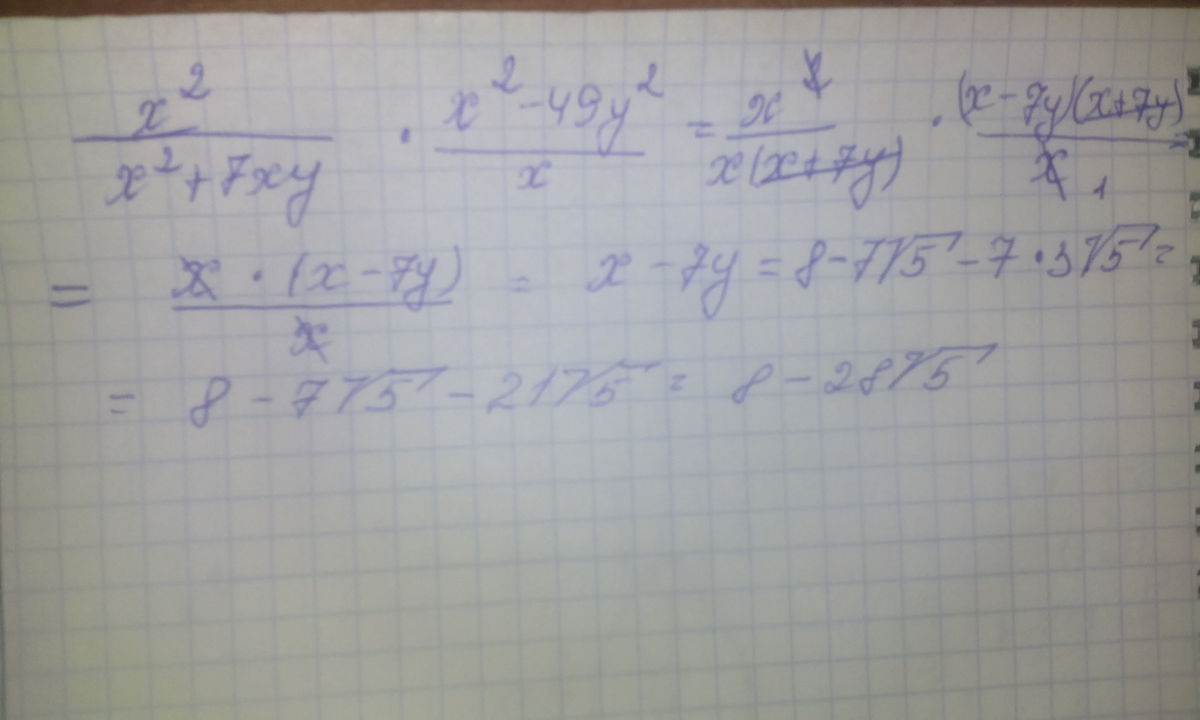 x²/(x²+7xy) · (x²-49y²)/x = x²/(x(x+7y)) · ((x-7y)(x+7y))/x 1 =
= (x · (x-7y))/x = x - 7y = 8-7√5 - 7·3√5 =
= 8 - 7√5 - 21√5 = 8 - 28√5